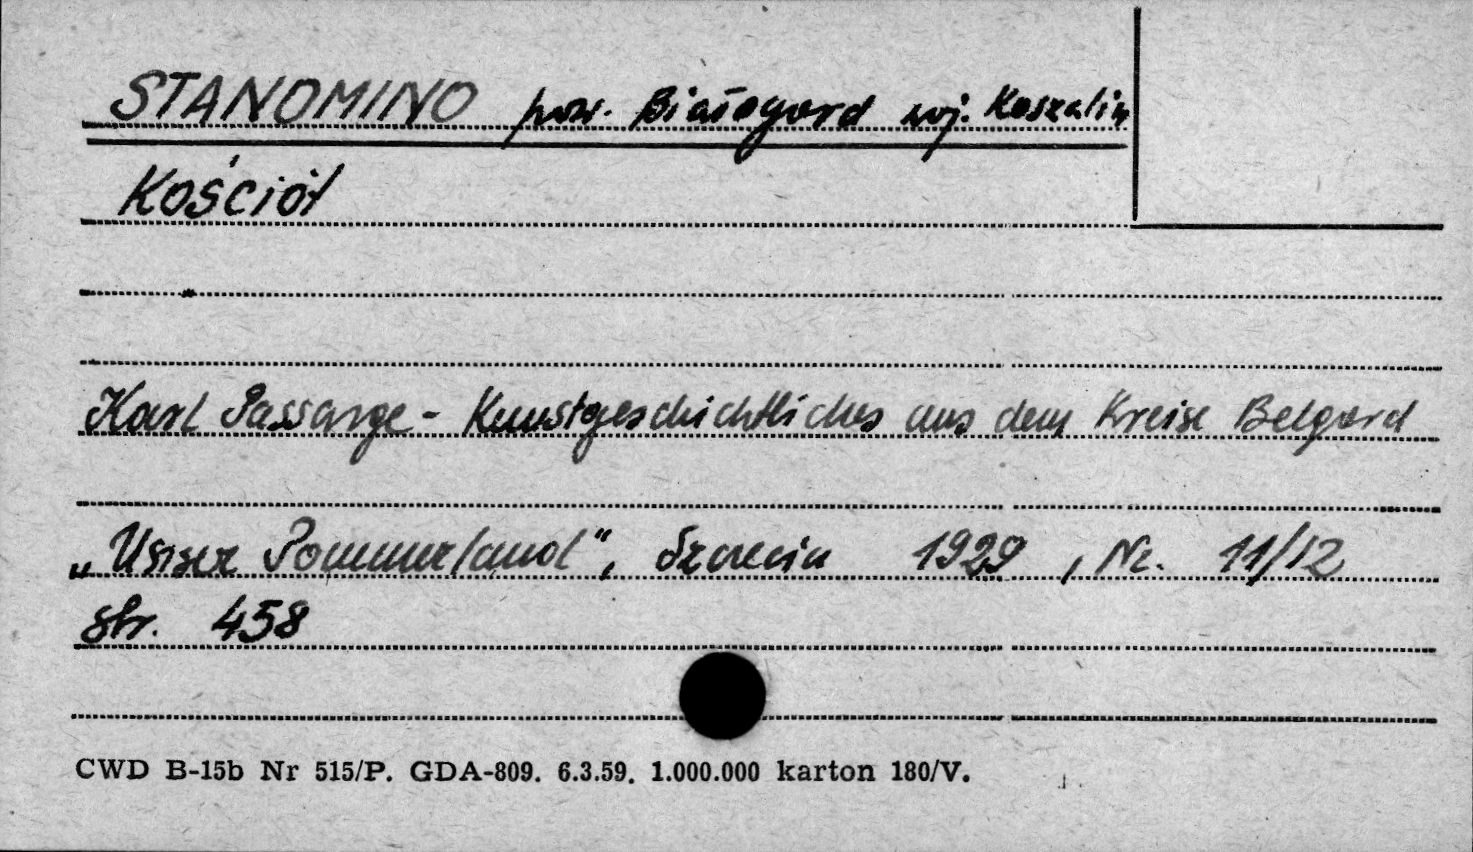 STANOMINO pow. Białogard woj. Koszalin
Kościół
Karl Passarge - Kunstgeschichtliches aus dem Kreise Belgard
„Unser Pommerland", Szczecin 1929, Nr. 11/12
str. 458
CWD B-15b Nr 515/P. GDA-809. 6.3.59. 1.000.000 karton 180/V.